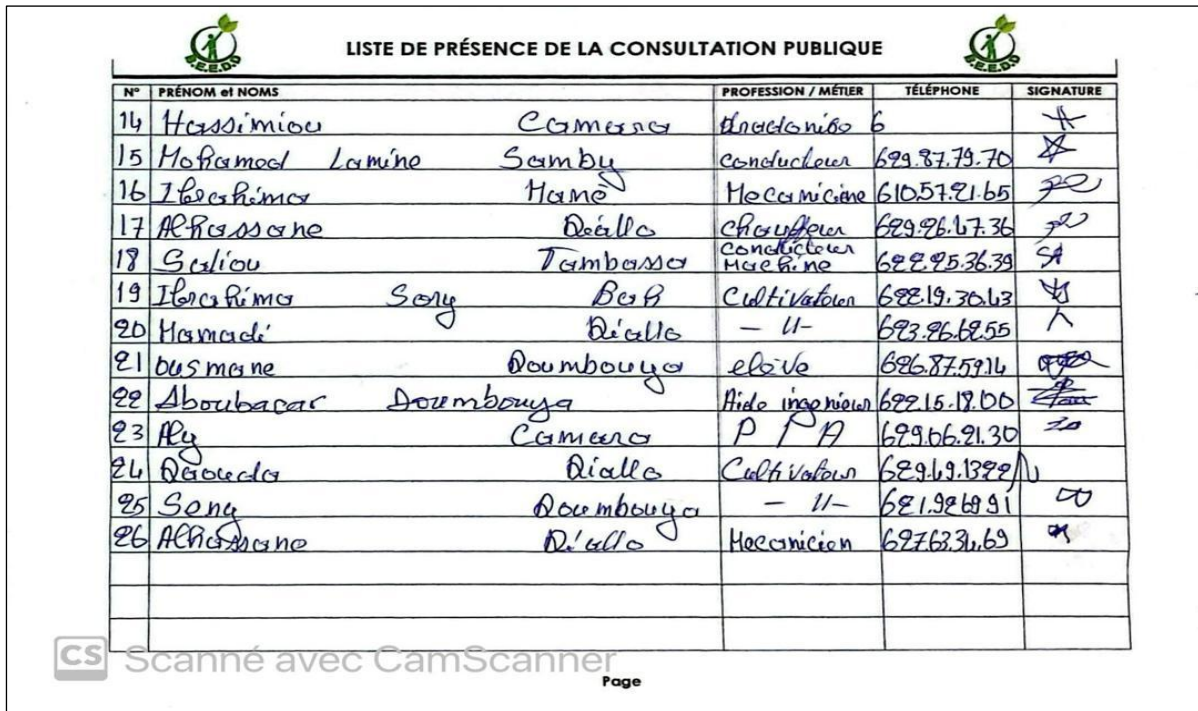 LISTE DE PRÉSENCE DE LA CONSULTATION PUBLIQUE
N° PRÉNOM et NOMS PROFESSION / MÉTIER TÉLÉPHONE SIGNATURE
14 Hassimiou Camara 6
15 Mohamed Lamine Samby conducteur 629.87.79.70
16 Ibrahima Mané Mecanicine 610.57.21.65
17 Alhassane Diallo chauffeur 629.26.47.36
18 Saliou Tambassa conducteur Machine 622.25.36.39 SA
19 Ibrahima Sory Bah Cultivateur 622.19.30.43
20 Mamadi Diallo — 11 - 623.26.62.55
21 ousmane Doumbouya eleve 626.87.5914
22 Aboubacar Doumbouya Aide ingenieur 622.15.18.00
23 Aly Camara P T A 629.06.21.30
24 Daouda Diallo Cultivateur 629.49.1322
25 Sory Doumbouya — 11 - 621.926991
26 Alhassane Diallo Mecanicien 627.63.34.69
CS Scanné avec CamScanner
Page